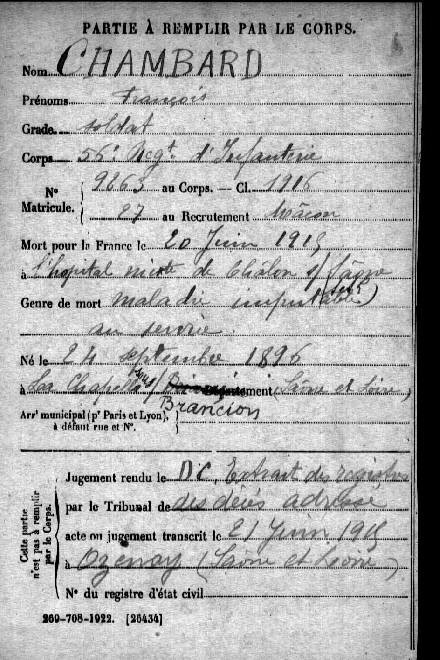 PARTIE À REMPLIR PAR LE CORPS.
Nom CHAMBARD
Prénoms François
Grade soldat
Corps 56e Regt. d'Infanterie
N° Matricule. 9263 au Corps. — Cl. 1916
27 au Recrutement Mâcon
Mort pour la France le 20 Juin 1915
à l'hopital mixte de Châlon s/ Saône
Genre de mort maladie imputable
au service
Né le 24 septembre 1896
à La Chapelle sous / Département (Saône et Loire)
Brancion
Arrt municipal (pr Paris et Lyon),
à défaut rue et N°.
Cette partie n'est pas à remplir par le Corps.
Jugement rendu le DC, Extrait des registres
par le Tribunal de des décès adressé
acte ou jugement transcrit le 21 Juin 1915
à Ozenay (Saône et Loire)
N° du registre d'état civil
269-708-1922. [26434]